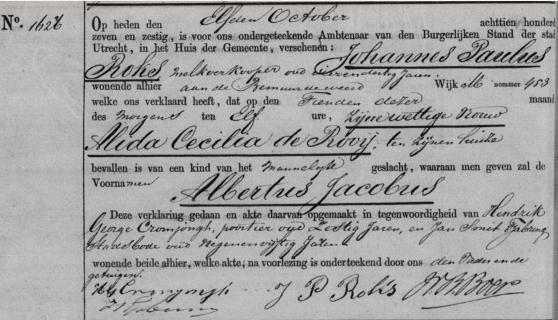 No. 1626
Op heden den Elfden October achttien honderd
zeven en zestig, is voor ons ondergeteekende Ambtenaar van den Burgerlijken Stand der sta
Utrecht, in het Huis der Gemeente, verschenen: Johannes Paulus
Roks melkverkooper oud vierendertig Jaren,
wonende alhier aan de Bemuurde weerd Wijk M nommer 453
welke ons verklaard heeft, dat op den Tienden dezer maand
des morgens ten Elf ure, zijne wettige Vrouw
Alida Cecilia de Rooij, ten zijnen huize
bevallen is van een kind van het Mannelijke geslacht, waaraan men geven zal de
Voornamen Albertus Jacobus
Deze verklaring gedaan en akte daarvan opgemaakt in tegenwoordigheid van Hendrik
George Cromjongh, portier oud Zestig Jaren, en Jan Smit
Stadsbode oud Negenenvijftig Jaren
wonende beide alhier, welke akte, na voorlezing is onderteekend door ons den Vader en de
getuigen.
HG Cromjongh J P Roks